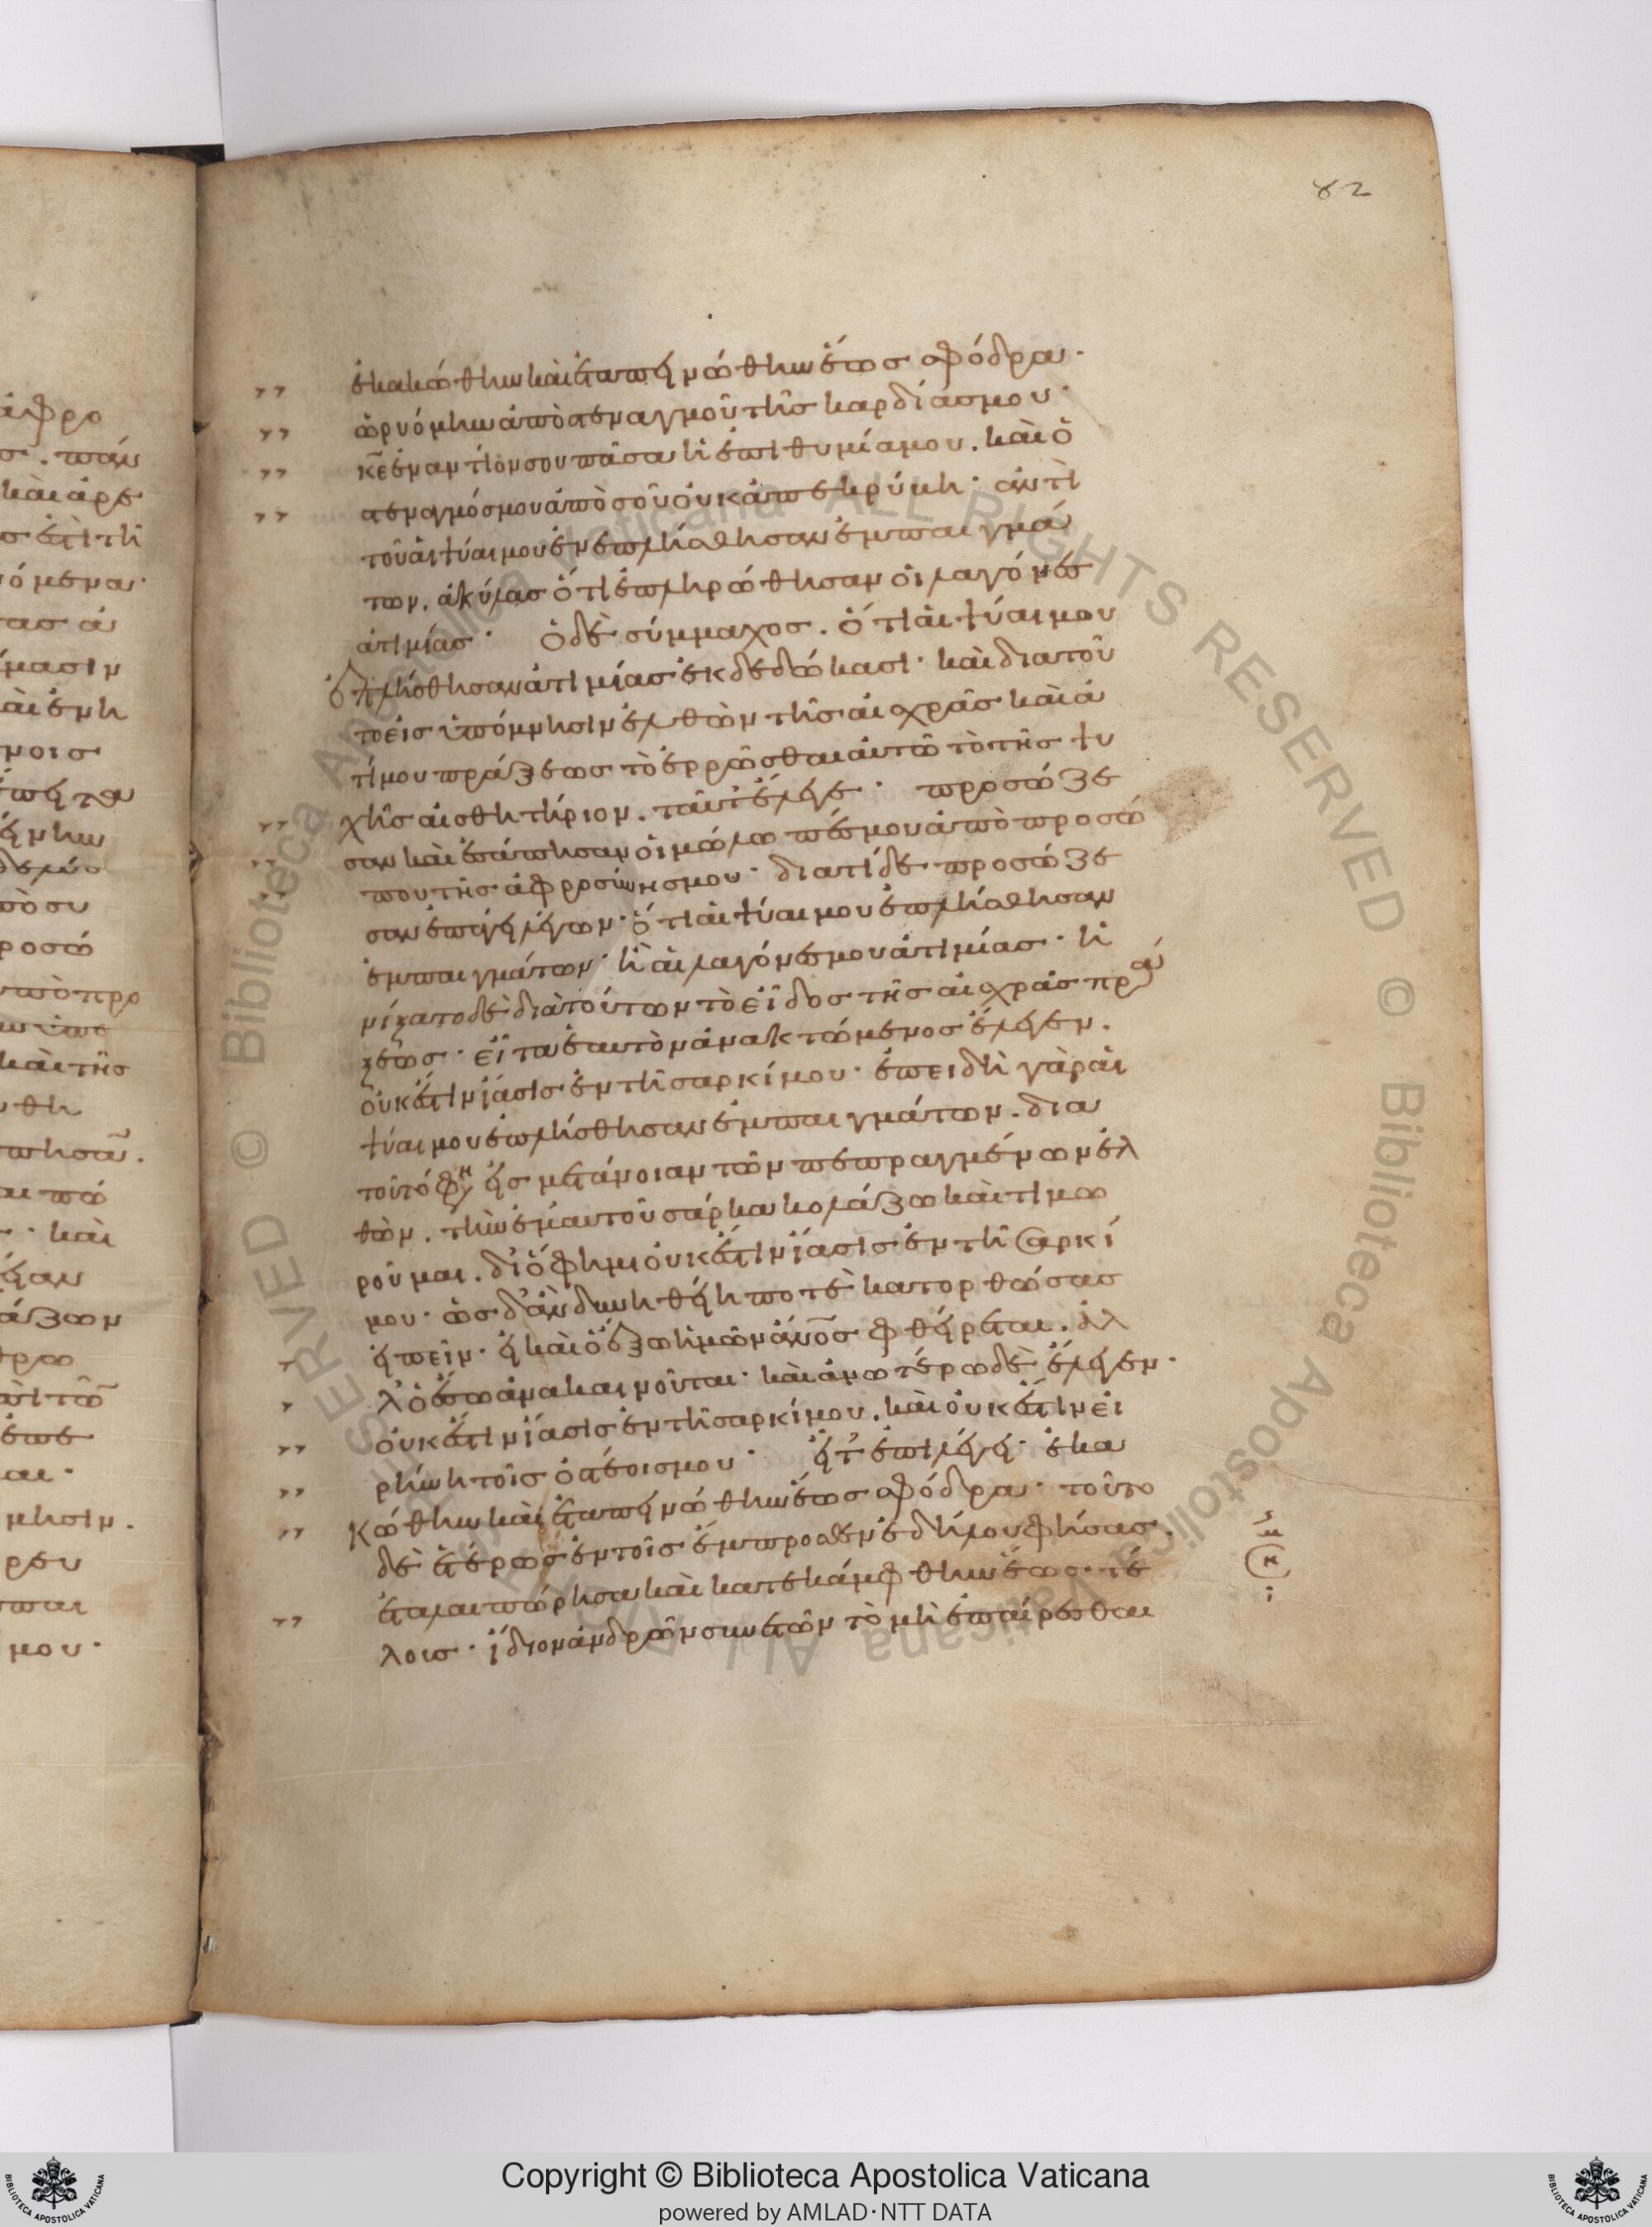 82
ἐκακώθην καὶ ἐταπεινώθην ἕως σφόδρα·
ὠρυόμην ἀπὸ στεναγμοῦ τῆς καρδίας μου·
κ̅ε̅ ἐναντίον σου πᾶσα ἡ ἐπιθυμία μου. καὶ ὁ
στεναγμός μου ἀπὸ σοῦ οὐκ ἀπεκρύβη· ἀντὶ
τοῦ αἱ ψύαι μου ἐνεπλήσθησαν ἐμπαιγμά
των. ἀκύλας ὅτι ἐπληρώθησαν οἱ λαγόνες
ἀτιμίας· ὁ δὲ σύμμαχος. ὅτι αἱ ψύαι μου
ἐπλήσθησαν ἀτιμίας ἐκδέδωκασι· καὶ διατοῦ
το εἰς ὑπόμνησιν ἐλθὼν τῆς αἰσχρᾶς καὶ ἀ
τίμου πράξεως τὸ ἐρρῶσθαι αὐτῶ τὸ τῆς ψυ
χῆς αἰσθητήριον. ταῦτ ἔλεγε· προσώζε
σαν καὶ ἐσάπησαν οἱ μώλωπές μου ἀπὸ προσώ
που τῆς ἀφροσύνης μου· διατί δε προσώζε
σαν ἐπάγει λέγων· ὅτι αἱ ψύαι μου ἐπλήσθησαν
ἐμπαιγμάτων· ἢ αἱ λαγόνες μου ἀτιμίας· ἠ
νίξατο δὲ διὰ τούτων τὸ εἶδος τῆς αἰσχρᾶς πρά
ξεως· εἶτα ἑαυτὸν ἀνακτώμενος ἔλεγεν.
οὐκ ἔστιν ἴασις ἐν τῆ σαρκί μου· ἐπειδὴ γὰρ αἱ
ψύαι μου ἐπλήσθησαν ἐμπαιγμάτων. δια
τοῦτό φη εἰς μετάνοιαν τῶν πεπραγμένων ἐλ
θὼν. τὴν ἐμαυτοῦ σάρκα κολάζω καὶ τιμω
ροῦμαι. διό φημι οὐκ ἔστιν ἴασις ἐν τῆ σαρκί
μου· ὡς δ' ἂν δυνηθείη ποτὲ κατορθώσας
εἰπεῖν· εἰ καὶ ὁ ἔξω ἡμῶν ἄν̅ο̅ς φθείρεται. ἀλ
λ' ὁ ἔσω ἀνακαινοῦται· καὶ ἀνωτέρω δὲ ἔλεγεν·
οὐκ ἔστιν ἴασις ἐν τῆ σαρκί μου. καὶ οὐκ ἔστιν εἰ
ρήνη τοῖς ὀστέοις μου· εἶτ ἐπιλέγει· ἐκα
κώθην καὶ ἐταπεινώθην ἕως σφόδρα· τοῦτο
δὲ ἑτέρως ἐν τοῖς ἔμπροσθεν ἐδήλου φήσας.
ἐταλαιπώρησα καὶ κατεκάμφθην ἕως τέ
λους· ἴδιον ἀνδρῶν συνετῶν τὸ μὴ ἐπαίρεσθαι